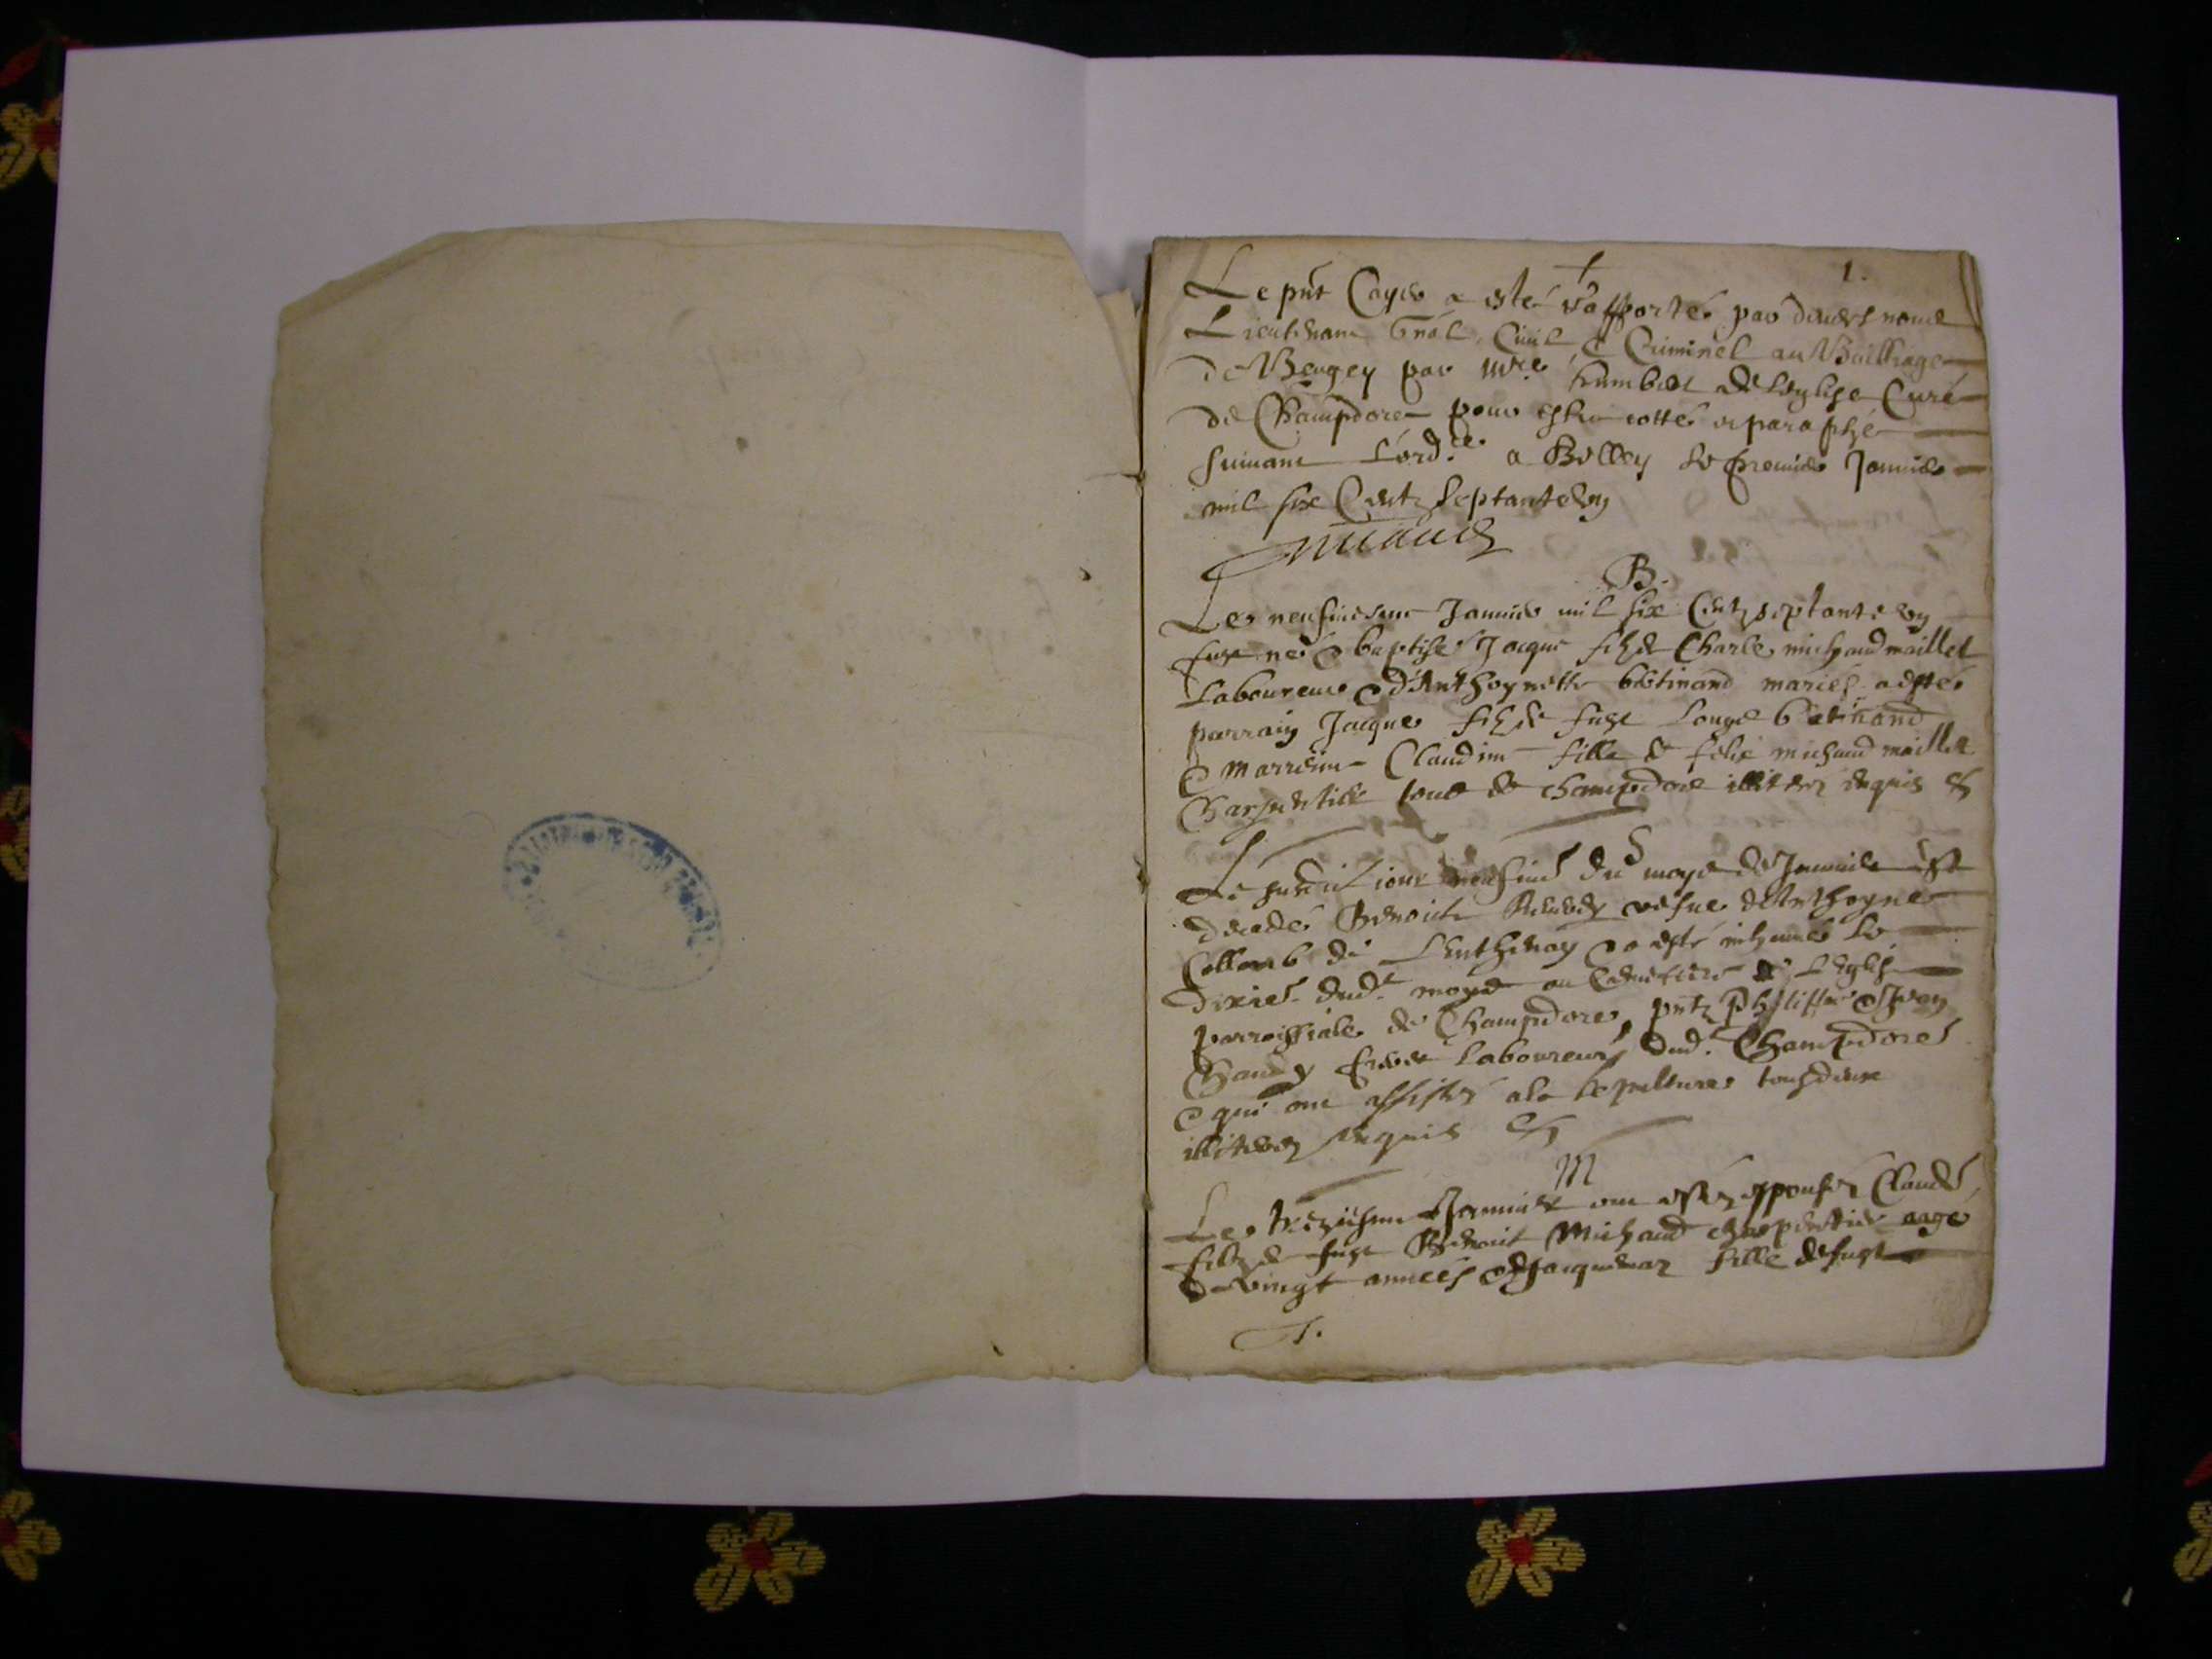 1.
Le pnt Cayer a esté rapporté par devers nous
Lieutenant Gnal, Civil & Criminel au Bailliage
de Beugey par Mre humbert de Leglise Curé
de Champdore pour estre cotté et paraphé
suivant L'ord.ce a Belley le premier Janvier
mil six Centz septante ung
B.
Le neufiesme Januier mil six Centz septante ung
fust né & baptisé Jacque filz de Charle michaud maillet
Laboureur & d'Anthoynette mariés a esté
parrain Jacque filz de fust
& marreine Claudine fille de felix michaud maillet
Charpentier tous de champdore illiterez enquis &
S
Le susdit jour neufie du moys de Januier est
decedé Benoite vefue d'Anthoyne
Collomb de Lenthenay & a esté inhumée le
dixie dud. moys au Cemetiere de L'Eglise
parroissiale de Champdore, pntz Philippe &
frere Laboureurs dud. Champdore
& qui ont assistez a la sepulture tous deux
illiterez enquis &
M
Le treziesme Januier ont estez espousez Claude
filz de fust Benoit Michaud charpentier aagé
de vingt années & Jacquemaz fille de fust